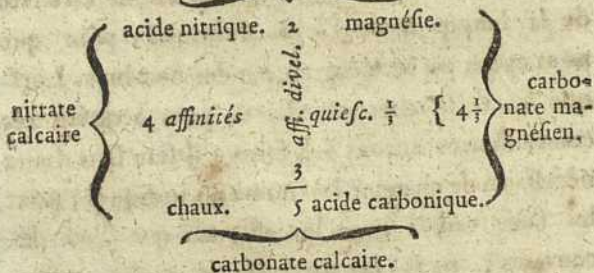 acide nitrique. 2 magnéſie.
nitrate calcaire
4 affinités
affi. divel.
quieſc. 1/3 { 4 1/3
carbo-
nate ma-
gnéſien.
3
chaux. 5 acide carbonique.
carbonate calcaire.